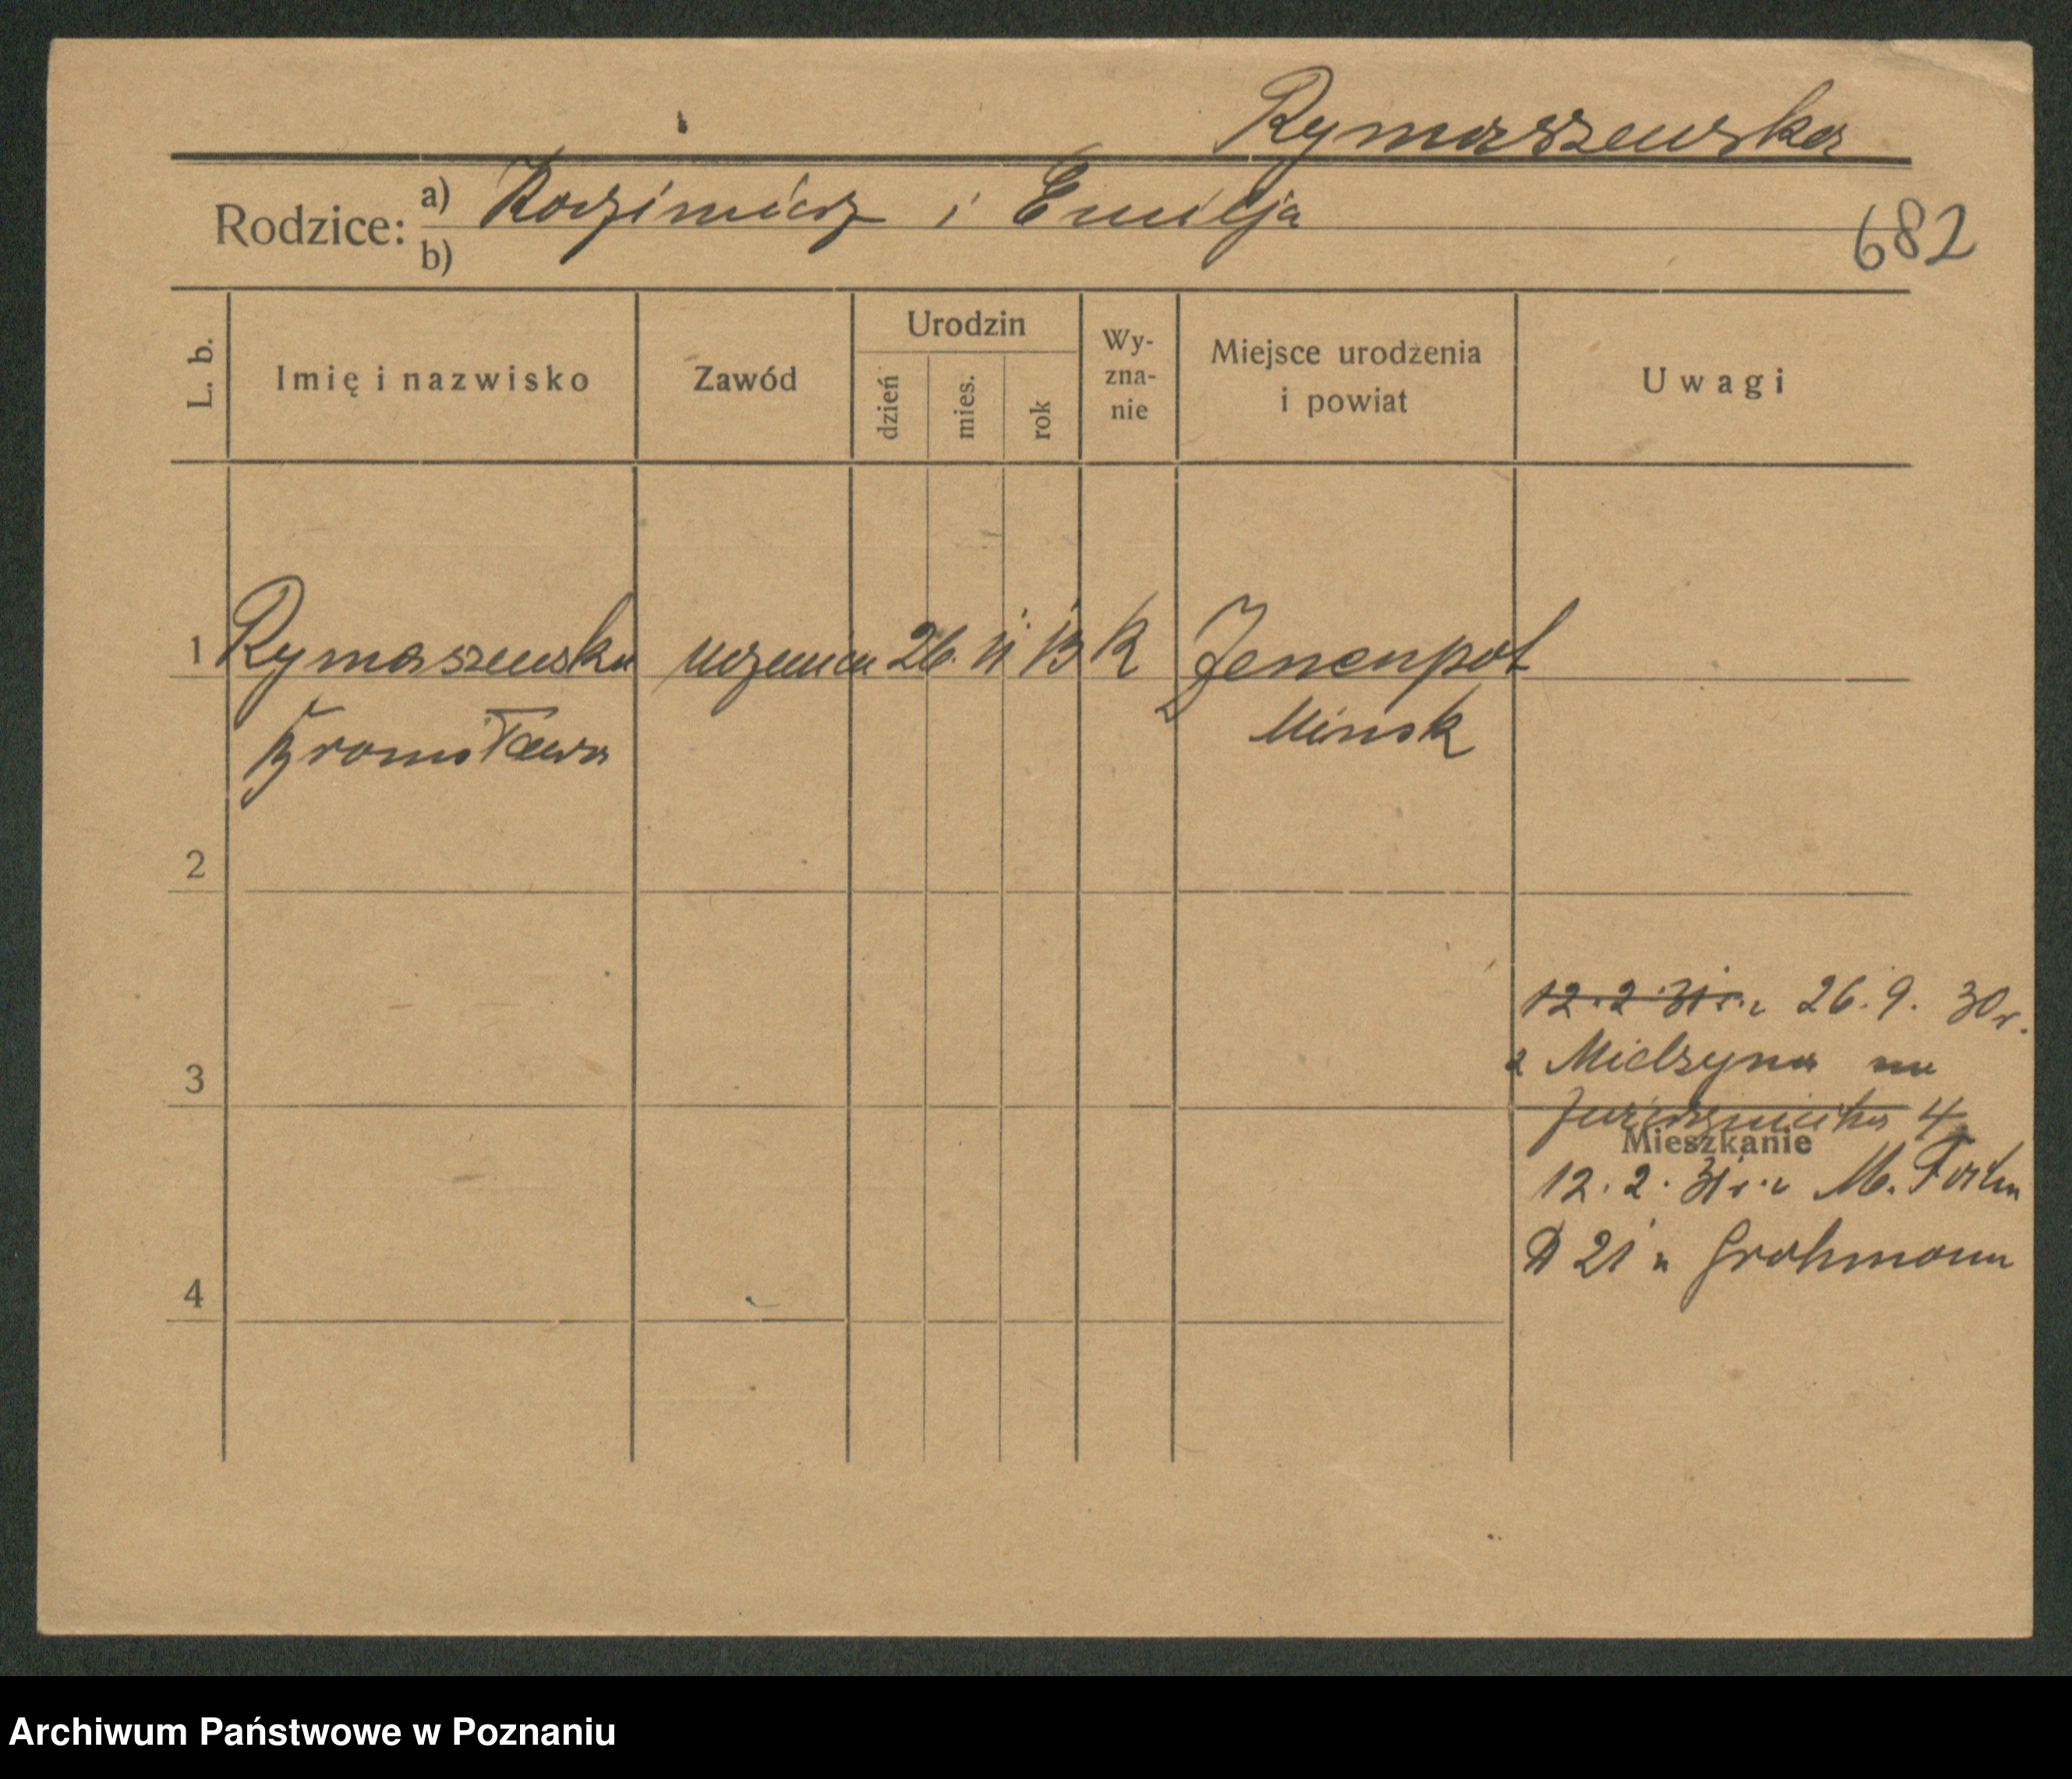 Rymaszewska
Rodzice: a) Kazimierz i Emilja
b)
682
L. b.
Imię i nazwisko
Zawód
Urodzin
dzień
mies.
rok
Wy-
zna-
nie
Miejsce urodzenia
i powiat
Uwagi
1 Rymaszewska uczenica 26. 11 13 K
Bronisława
Mińsk
2
12.2.31 r. z 26.9.30 r.
3
z Mielżyna na
4
Mieszkanie
12.2.31 r. z M.
21 u Grohmann
4
Archiwum Państwowe w Poznaniu